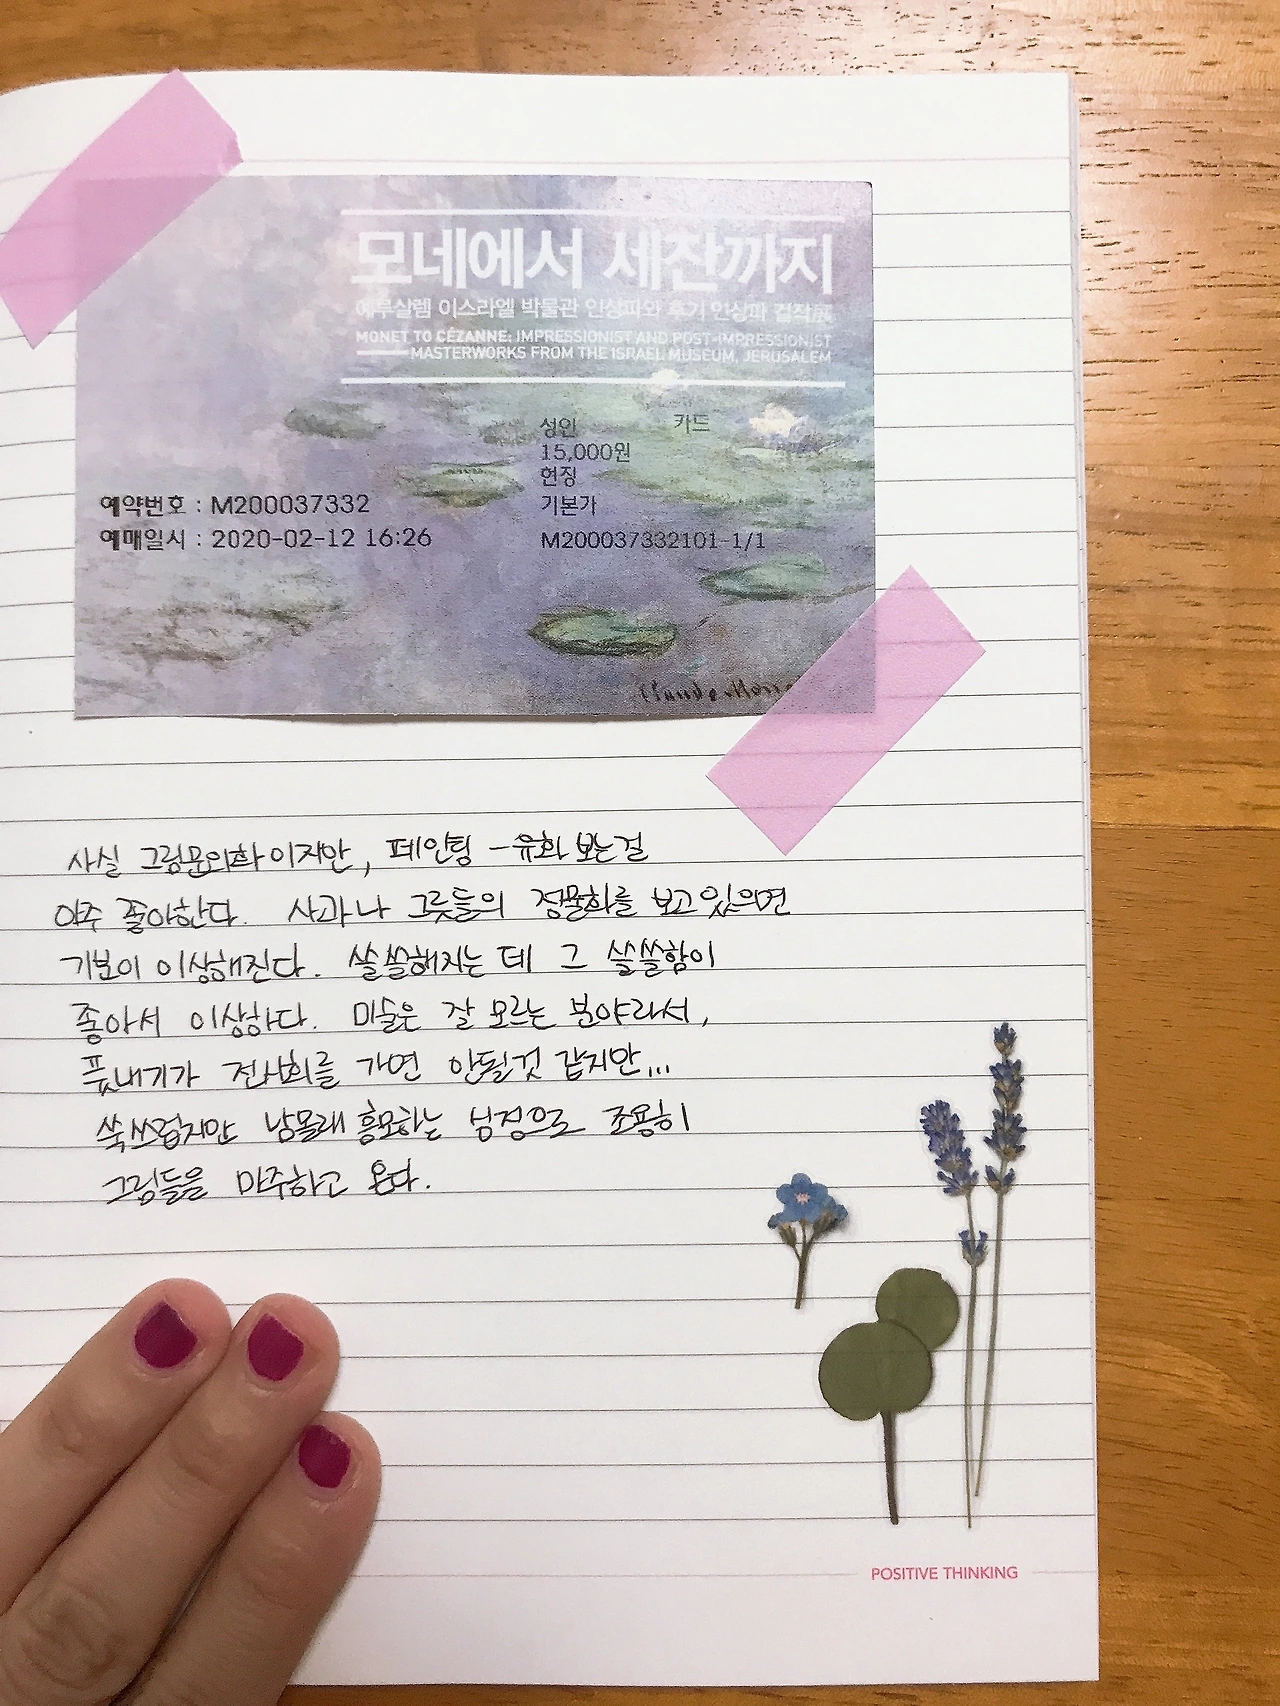 모네에서 세잔까지
예루살렘 이스라엘 박물관 인상파와 후기 인상파 걸작展
MONET TO CÉZANNE: IMPRESSIONIST AND POST-IMPRESSIONIST
MASTERWORKS FROM THE ISRAEL MUSEUM, JERUSALEM
성인 카드
15,000원
현장
기본가
예약번호 : M200037332
예매일시 : 2020-02-12 16:26
M200037332101-1/1
Claude Mone
사실 그림문외한이지만, 페인팅 - 유화 보는걸
아주 좋아한다. 사과나 그릇들의 정물화를 보고있으면
기분이 이상해진다. 쓸쓸해지는 데 그 쓸쓸함이
좋아서 이상하다. 미술은 잘 모르는 분야라서,
풋내기가 전시회를 가면 안될것 같지만...
쑥쓰럽지만 남몰래 흠모하는 심정으로 조용히
그림들을 마주하고 온다.
POSITIVE THINKING